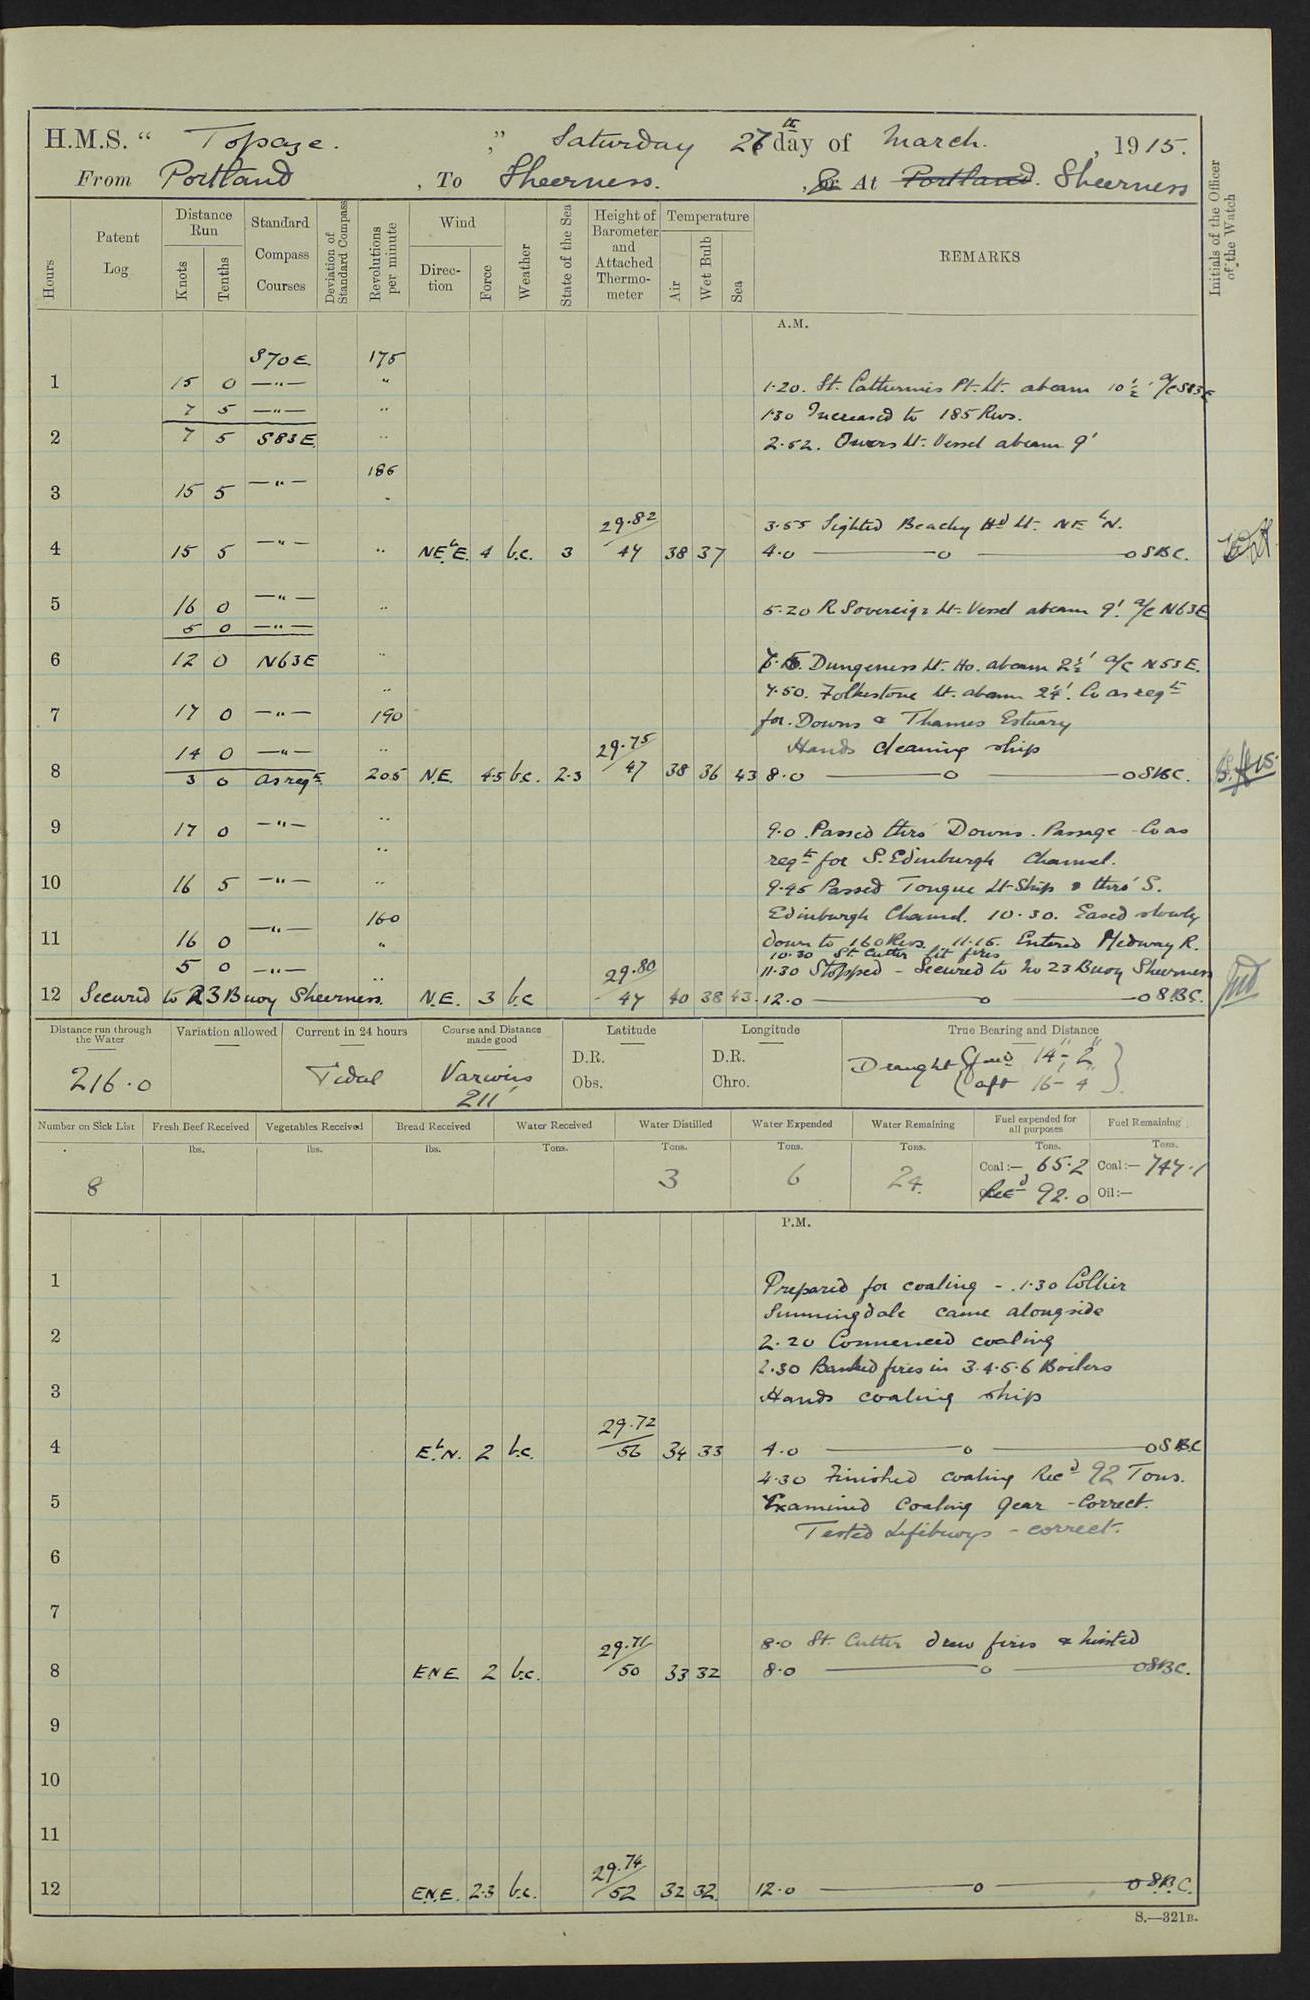 H.M.S. " Topaze. ", Saturday 27th day of March. , 1915.
From Portland , To Sheerness. , or At Portland. Sheerness
Hours
Patent Log
Distance Run
Knots
Tenths
Standard Compass Courses
Deviation of Standard Compass
Revolutions per minute
Wind
Direction
Force
Weather
State of the Sea
Height of Barometer and Attached Thermometer
Temperature
Air
Wet Bulb
Sea
REMARKS
Initials of the Officer of the Watch
A.M.
S70E 175
1 15 0 —"— " 1.20. St. Catherines Pt. Lt. abeam 10½' a/c S83E
7 5 —"— " 1.30 Increased to 185 Revs.
2 7 5 S83E " 2.52. Owers Lt. Vessel abeam 9'
185
3 15 5 —"— "
29.82 3.55 Sighted Beachy Hd Lt. NE b N.
4 15 5 —"— " NE b E. 4 b.c. 3 47 38 37 4.0 — o — o S.B.C.
5 16 0 —"— " 5.20 R. Sovereign Lt. Vessel abeam 9'. a/c N63E
5 0 —"—
6 12 0 N63E " Dungeness Lt. Ho. abeam 2½' a/c N53E.
" 7.50. Folkestone Lt. abeam 2¼'. Co as reqd
7 17 0 —"— 190 for Downs & Thames Estuary
14 0 —"— " 29.75 Hands cleaning ship
8 3 0 As reqd. 205 N.E. 4.5 b.c. 2.3 47 38 36 43 8.0 — o — o S.B.C.
9 17 0 —"— " 9.0. Passed thro' Downs. Passage Co as
" reqd for S. Edinburgh Channel.
10 16 5 —"— " 9.45 Passed Tongue Lt Ship & thro' S.
—"— 160 Edinburgh Channel. 10.30. Eased slowly
11 16 0 " down to 160 Revs. 11.15. Entered Medway R.
10.30 St. Cutter lit fires
5 0 —"— " 29.80 11.30 Stopped - Secured to No 23 Buoy Sheerness
12 Secured to 23 Buoy Sheerness. N.E. 3 b.c 47 40 38 43. 12.0 — o — o S.B.C.
Distance run through the Water
Variation allowed
Current in 24 hours
Course and Distance made good
Latitude
Longitude
True Bearing and Distance
216.0 Tidal Various 211'
D.R.
Obs.
D.R.
Chro.
Draught (fwd 14'- 2"
(aft 16'- 4"
Number on Sick List
Fresh Beef Received
Vegetables Received
Bread Received
Water Received
Water Distilled
Water Expended
Water Remaining
Fuel expended for all purposes
Fuel Remaining
lbs. lbs. lbs. Tons. Tons. Tons. Tons. Tons. Tons.
8 3 6 24. Coal:— 65.2 Coal:— 747.1
Recd 92.0 Oil:—
P.M.
1 Prepared for coaling - 1.30 Collier
Sunningdale came alongside
2 2.20 Commenced coaling
2.30 Banked fires in 3.4.5.6 Boilers
3 Hands coaling ship
29.72
4 E b N. 2 b.c. 56 34 33 4.0 — o — o S.B.C
4.30 Finished coaling Recd 92 Tons.
5 Examined Coaling Gear - Correct.
Tested Lifebuoys - correct.
6
7
29.71 8.0 St. Cutter drew fires & hoisted
8 ENE. 2 b.c. 50 33 32 8.0 — o — o S.B.C.
9
10
11
29.74
12 E.N.E. 2.3 b.c. 52 32 32. 12.0 — o — o S.B.C.
S.—321B.